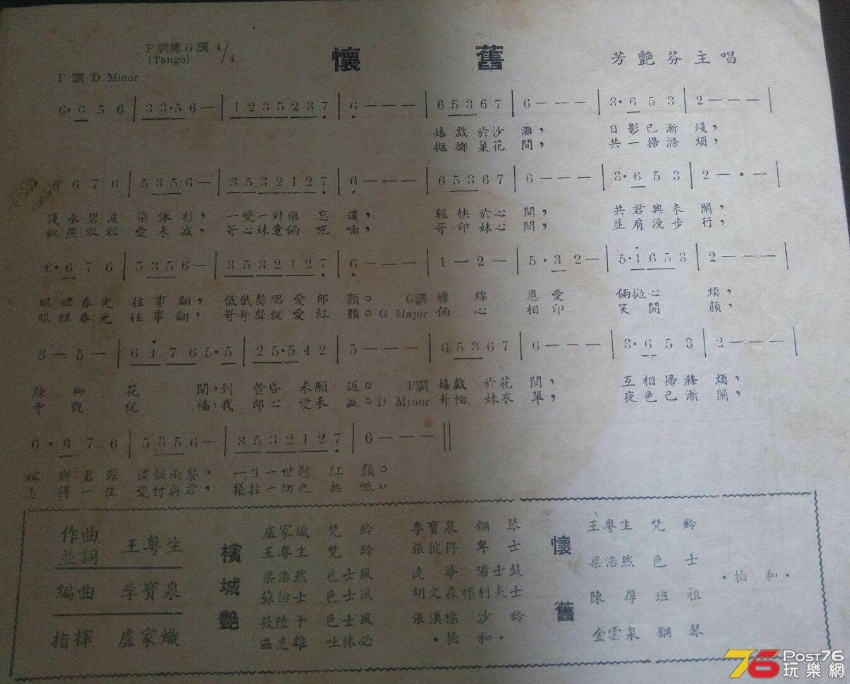 F調轉G調 4/4
(Tango)
懷舊
芳艷芬主唱
F調 D Minor
6·6 5 6 | 3 3·5 6 — | 1 2 3 5 2 3 7 | 6 — — — | 6 5 3 6 7 | 6 — — — | 3·6 5 3 | 2 — — — |
嬉戲於沙灘， 日影已漸殘，
拋擲菜花間， 共一掃滌煩，
6 6 7 6 | 5 3 5 6 — | 3 5 3 2 1 2 7 | 6 — — — | 6 5 3 6 7 | 6 — — — | 3·6 5 3 | 2 — · — · |
淺水碧波染泳衫， 一雙一對樂忘還， 輕快於心間， 共君興未闌，
似燕雙雙愛未減， 哥心妹意倆呢喃， 哥印妹心間， 並肩漫步行，
6·6 7 6 | 5 3 5 6 — | 3 5 3 2 1 2 7 | 6 — — — | 1 — 2 — | 5·3 2 — | 5·1 6 5 3 |
眼裡春光往事翻， 低低聲唱愛郎顏。 G調 纏綿恩愛 倆拋心煩，
眼裡春光往事翻， 哥哥聲說愛紅顏。 G Major 倆心相印 笑開顏，
3 — 5 — | 6 1 7 6 5·5 | 2 5·5 4 2 | 5 — — — | 6 5 3 6 7 | 6 — — — | 3·6 5 3 | 2 — — — |
花間，到黃昏未願返。 F調 嬉戲於花間， 互相掃滌煩，
我郎心愛未 D Minor 哥怕妹衣單， 夜色已漸闌，
6·6 7 6 | 5 3 5 6 — | 3 5 3 2 1 2 7 | 6 — — — ||
嫁與君跟淡飯兩餐， 一生一世慰紅顏。
怎得一生愛付與君， 犧牲一切也無慨。
作曲並詞 王粵生
編曲 李寶泉
指揮 盧家熾
檳城艷
盧家熾 梵鈴
王粵生 梵鈴
梁浩然 色士風
蘇怡士 色士風
陸子 色士風
區志雄 吐林必
李寶泉 鋼琴
卑士
華 嗜士鼓
胡文森 祁利夫士
張漢 沙鈴
·拍和·
懷舊
王粵生 梵鈴
梁浩然 色士
陳厚 班祖
金雲泉 鋼琴
·拍和·
76 Post76
玩樂網